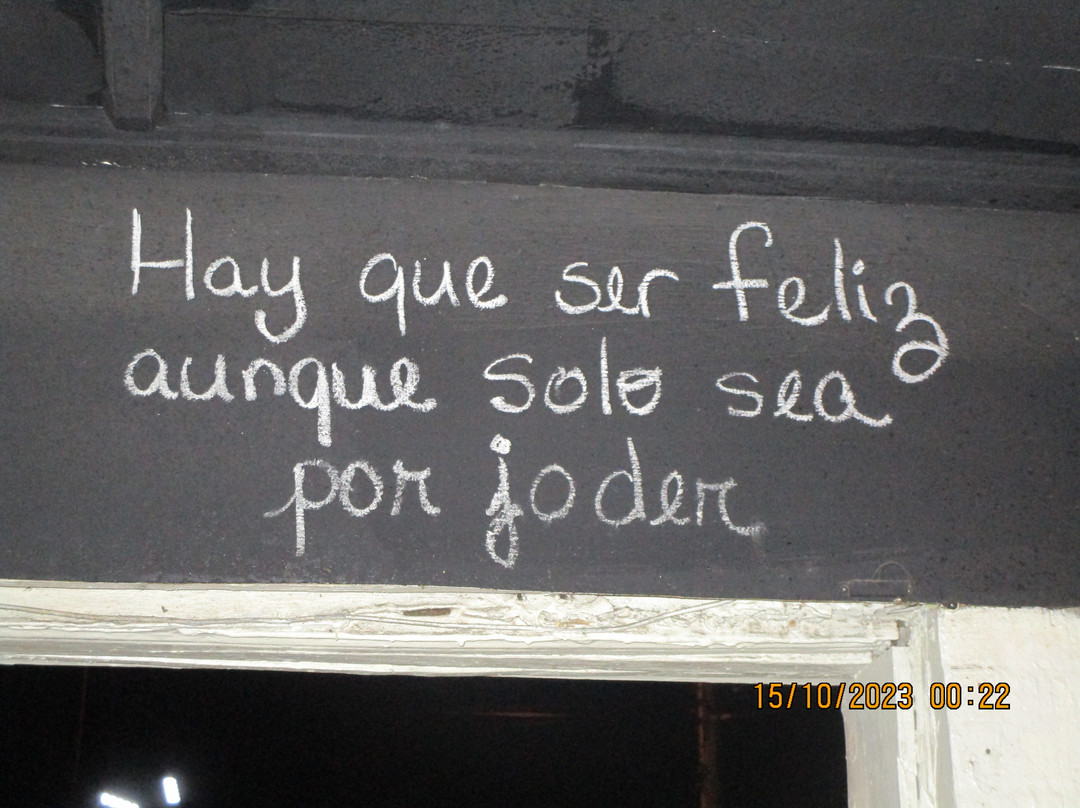 Hay que ser feliz
aunque solo sea
por joder
15/10/2023 00:22